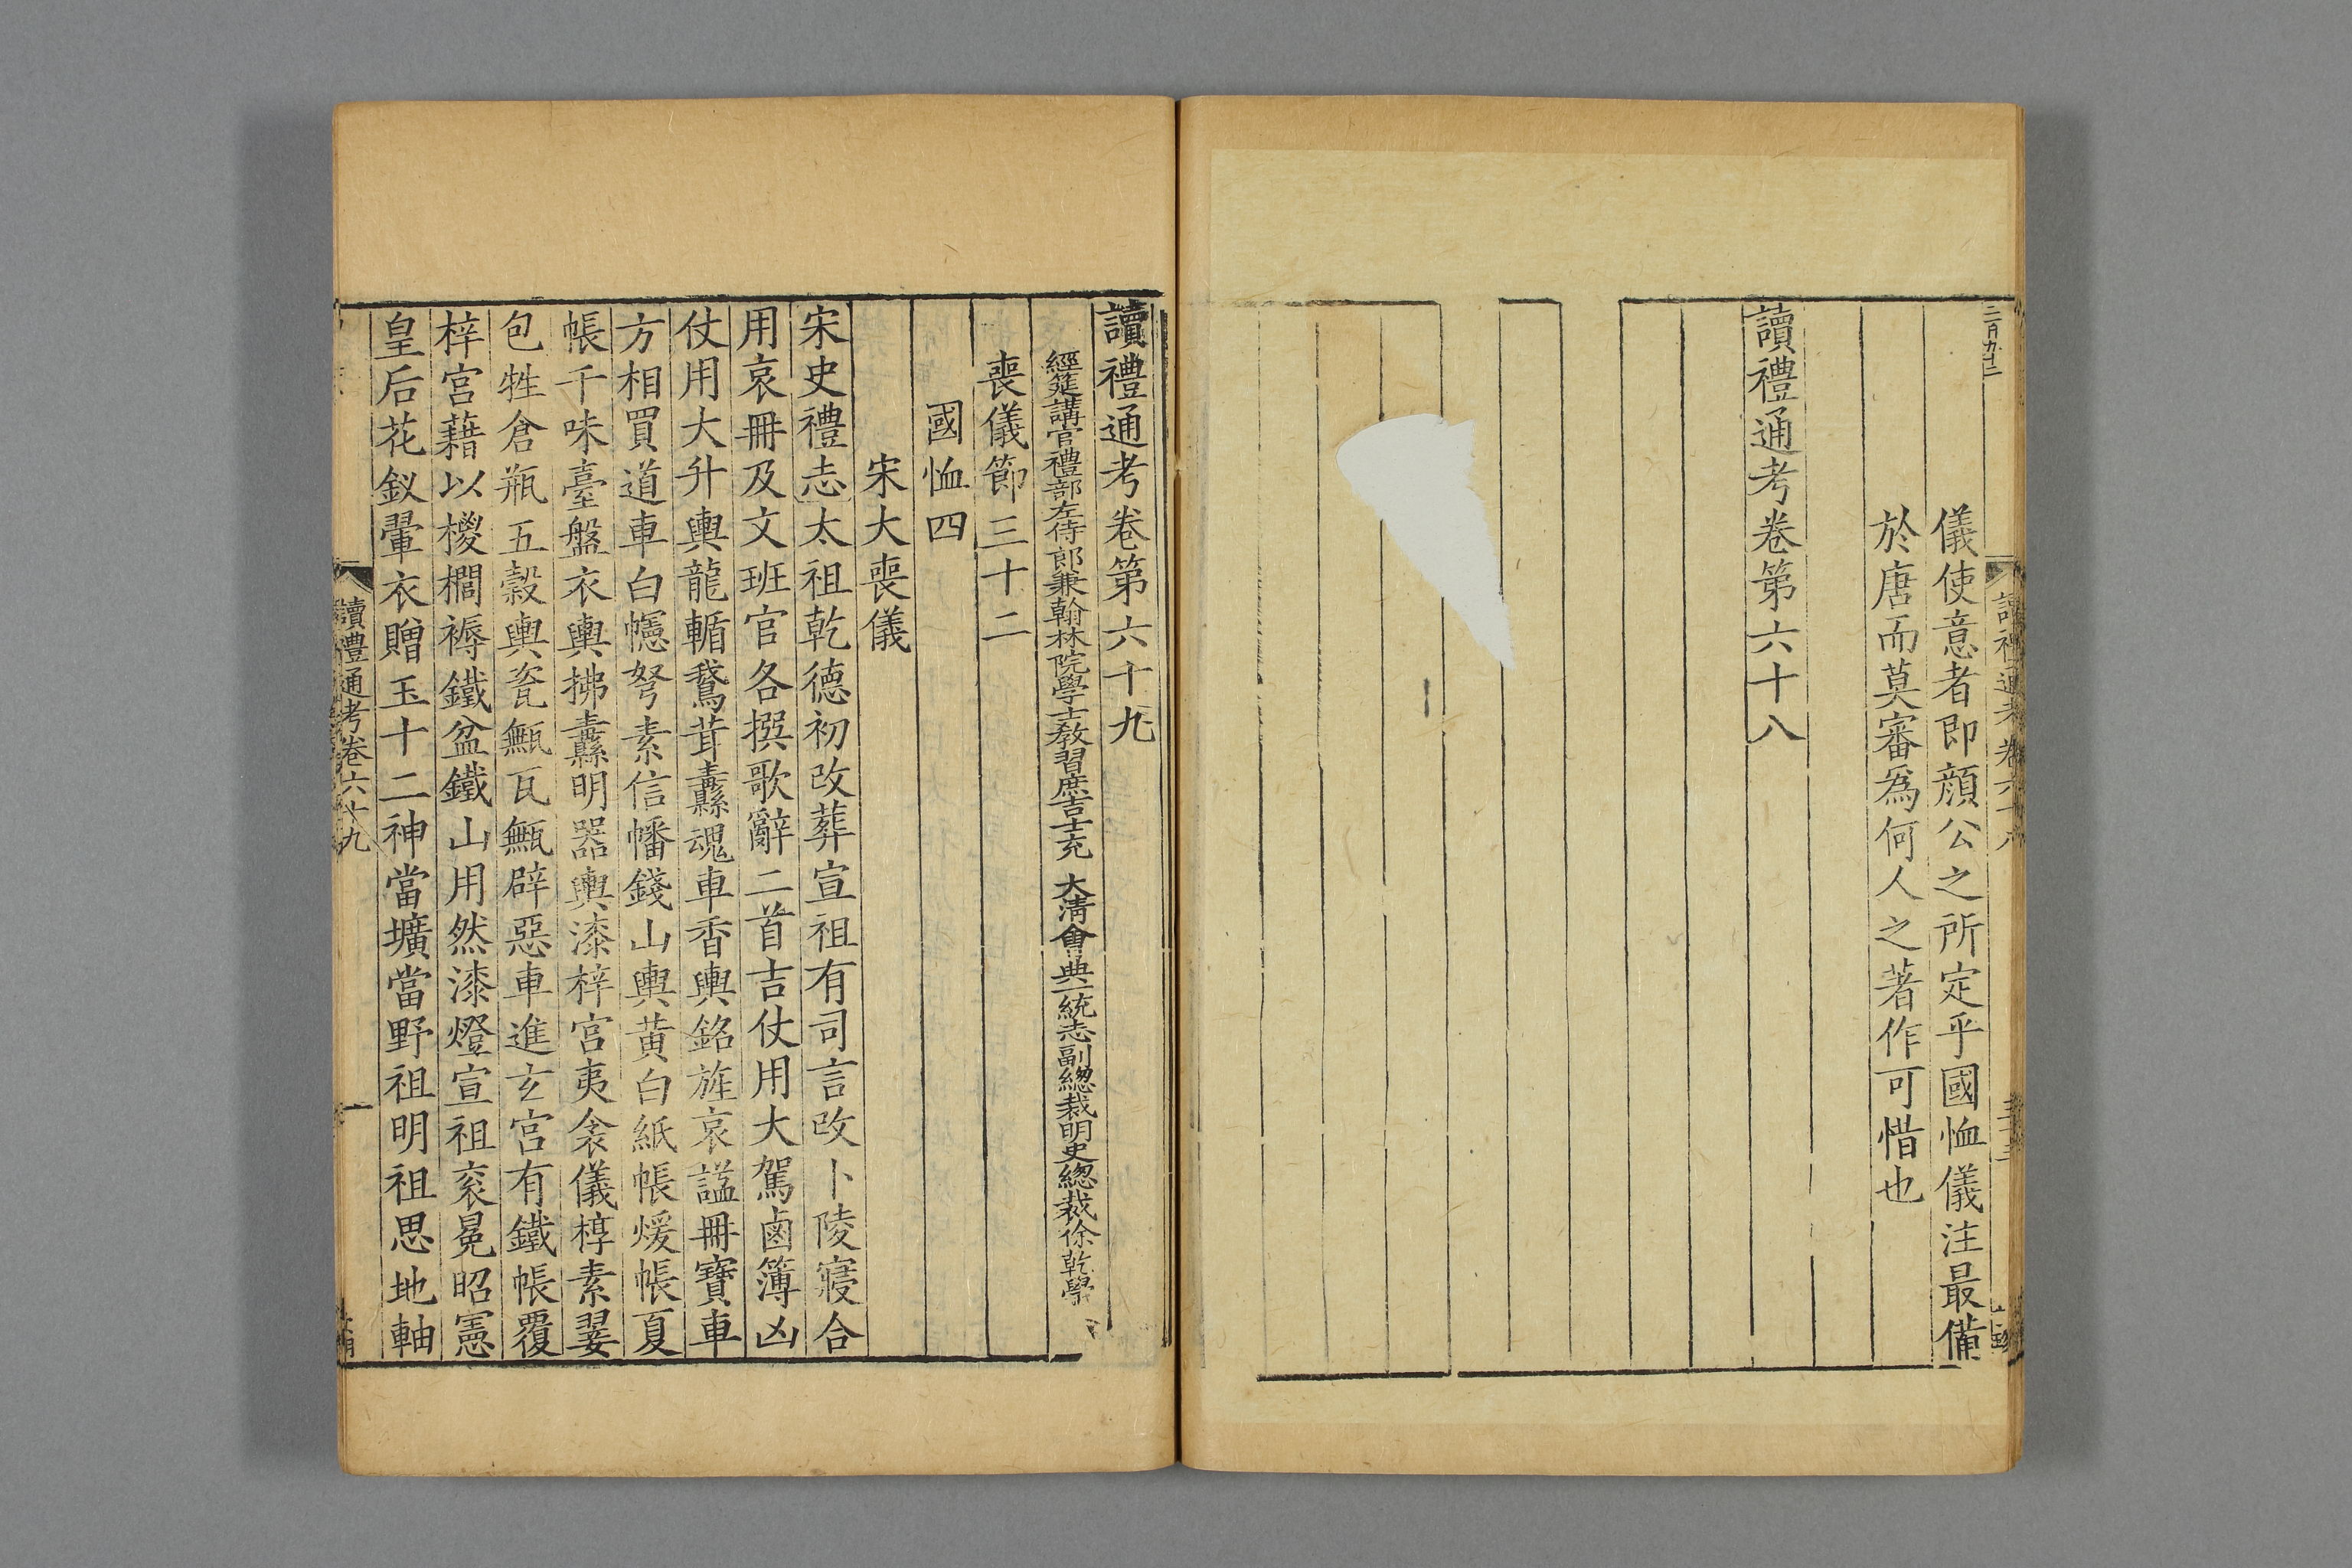 儀使意者即顏公之所定乎國恤儀注最備
於唐而莫審爲何人之著作可惜也
讀禮通考卷第六十八
讀禮通考卷第六十九
經筵講官禮部左侍郎兼翰林院學士教習庶吉士充 大清會典一統志副總裁明史總裁徐乾學
喪儀節三十二
國恤四
宋大喪儀
宋史禮志太祖乾德初改葬宣祖有司言改卜陵寢合
用哀冊及文班官各撰歌辭二首吉仗用大駕鹵簿凶
仗用大升輿龍輴鵞茸纛魂車香輿銘旌哀謚冊寶車
方相買道車白幰弩素信幡錢山輿黄白紙帳煖帳夏
帳千味臺盤衣輿拂纛明器輿漆梓宮夷衾儀椁素翣
包牲倉瓶五穀輿瓷甒瓦甒辟惡車進玄宮有鐵帳覆
梓宮藉以椶櫚褥鐵盆鐵山用然漆燈宣祖衮冕昭憲
皇后花釵翬衣贈玉十二神當壙當野祖明祖思地軸
讀禮通考卷六十九
一